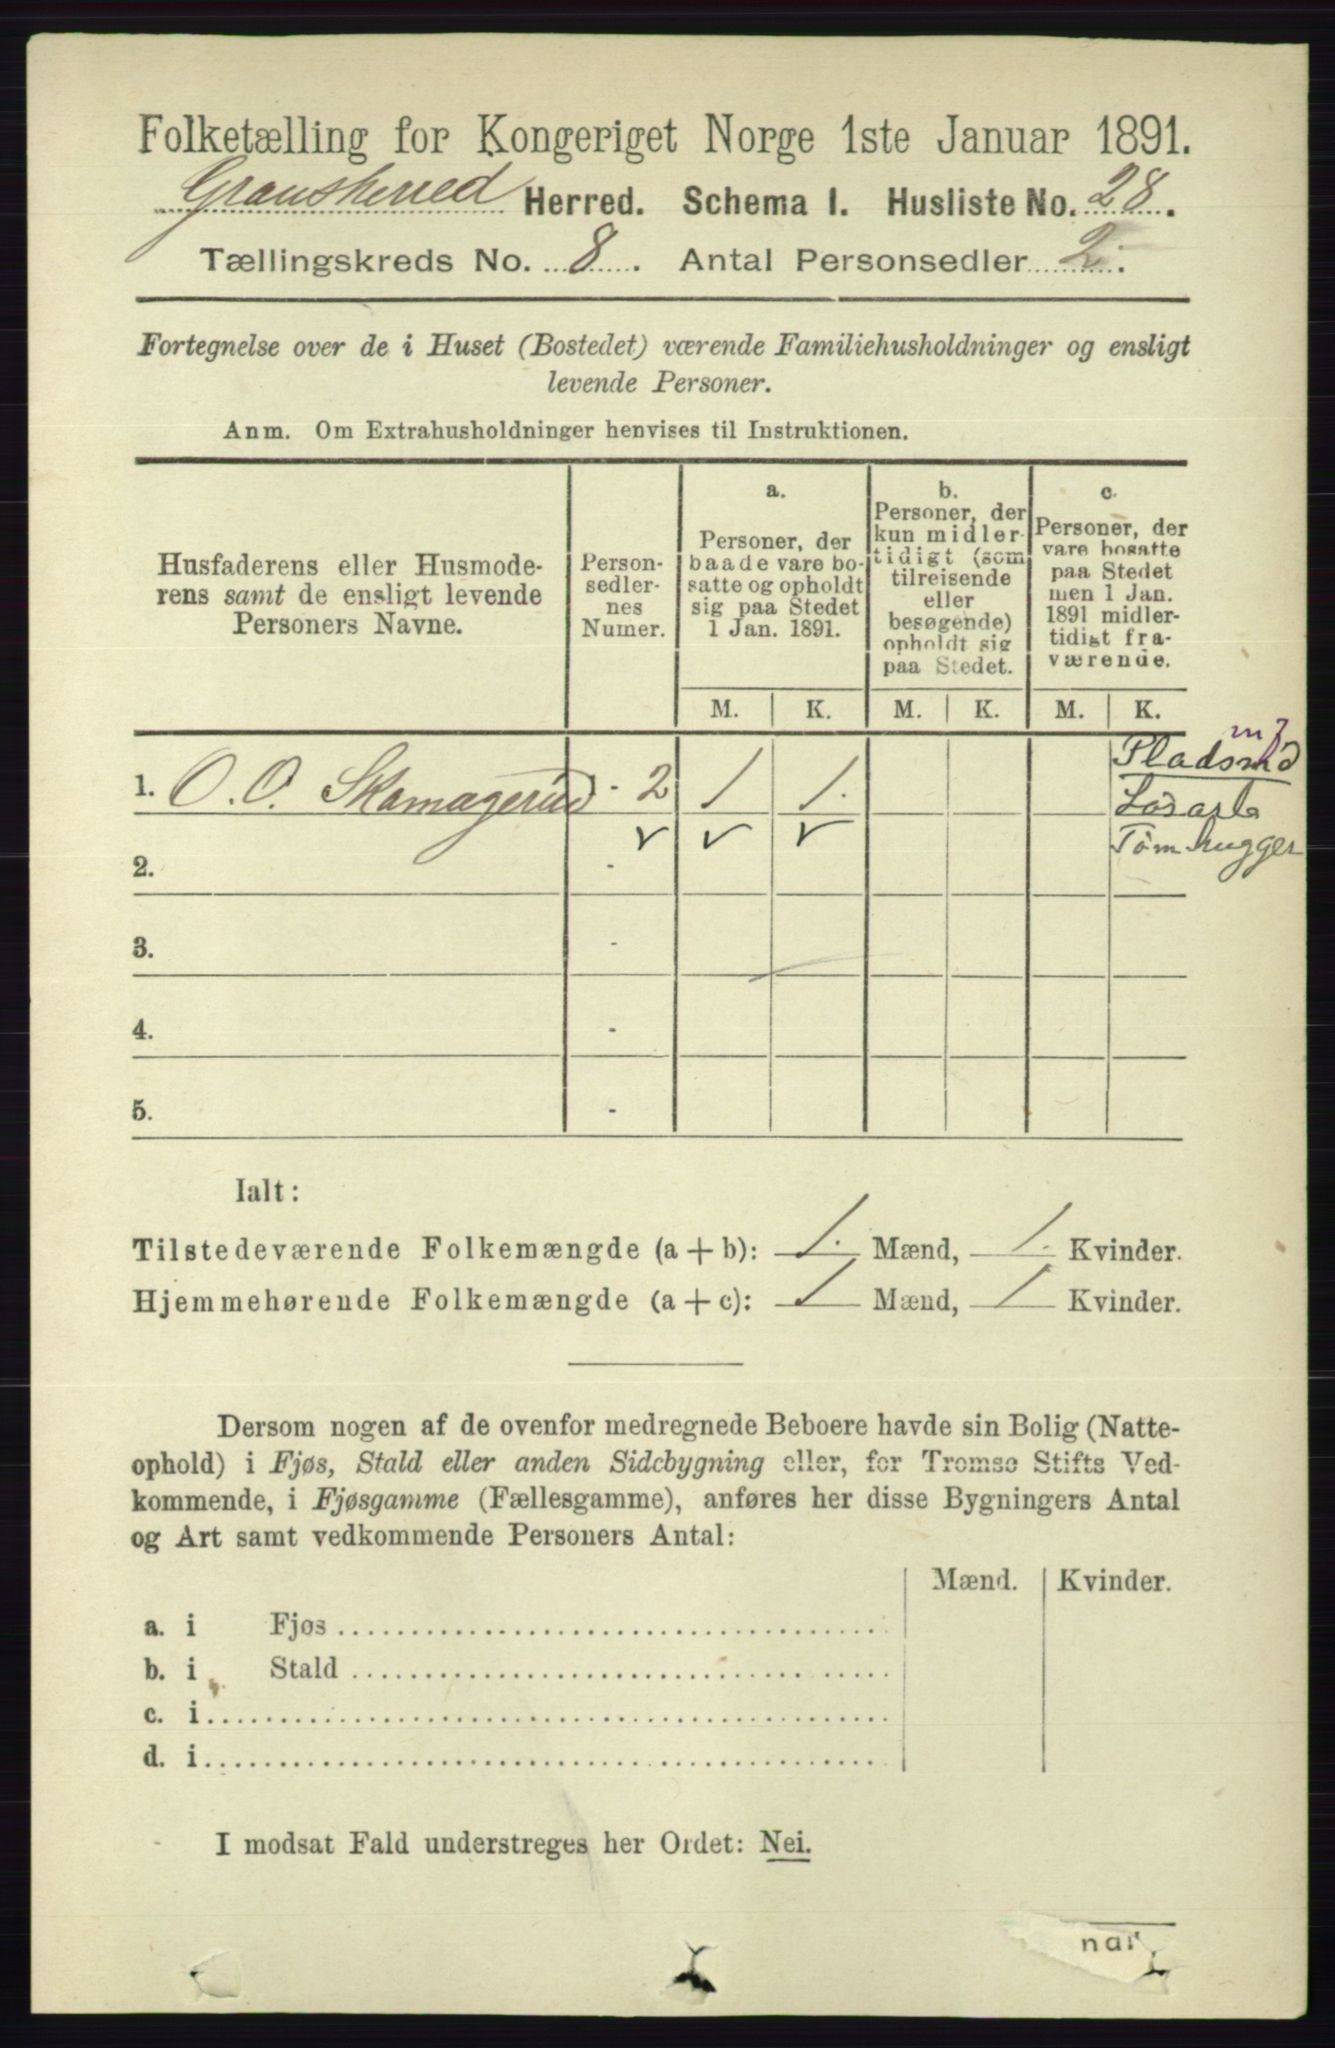 Folketælling for Kongeriget Norge 1ste Januar 1891.
Gransherred Herred. Schema I. Husliste No. 28.
Tællingskreds No. 8. Antal Personsedler 2.
Fortegnelse over de i Huset (Bostedet) værende Familiehusholdninger og ensligt
levende Personer.
Anm. Om Extrahusholdninger henvises til Instruktionen.
Husfaderens eller Husmode-
rens samt de ensligt levende
Personers Navne.
Person-
sedler-
nes
Numer.
a.
Personer, der
baade vare bo-
satte og opholdt
sig paa Stedet
1 Jan. 1891.
b.
Personer, der
kun midler-
tidigt (som
tilreisende
eller
besøgende)
opholdt sig
paa Stedet.
c.
Personer, der
vare bosatte
paa Stedet
men 1 Jan.
1891 midler-
tidigt fra-
værende.
M. K. M. K. M. K.
1. O. O. Skamagerud - 2 1 1.
Pladsmd
Løsarb
Tømhugger
2. -
3. -
4. -
5. -
Ialt:
Tilstedeværende Folkemængde (a + b): 1. Mænd, 1. Kvinder.
Hjemmehørende Folkemængde (a + c): 1 Mænd, 1 Kvinder.
Dersom nogen af de ovenfor medregnede Beboere havde sin Bolig (Natte-
ophold) i Fjøs, Stald eller anden Sidebygning eller, for Tromsø Stifts Ved-
kommende, i Fjøsgamme (Fællesgamme), anføres her disse Bygningers Antal
og Art samt vedkommende Personers Antal:
Mænd. Kvinder.
a. i Fjøs
b. i Stald
c. i
d. i
I modsat Fald understreges her Ordet: Nei.
nar